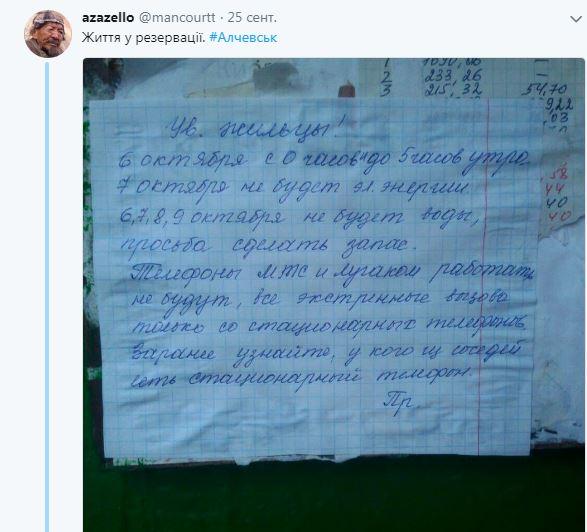 azazello @mancourtt · 25 сент.
Життя у резервації. #Алчевськ
1 1090,60 —
2 233,26 —
3 215,32 54,70
9,22
,03
,58
44
40
40
Ув. жильцы!
6 октября с 0 часов до 5 часов утра
7 октября не будет эл. энергии.
6,7,8,9 октября не будет воды,
просьба сделать запас.
Телефоны МТС и Лугаком работать
не будут, все экстренные вызова
только со стационарных телефонов.
Заранее узнайте, у кого из соседей
есть стационарный телефон.
Пр.